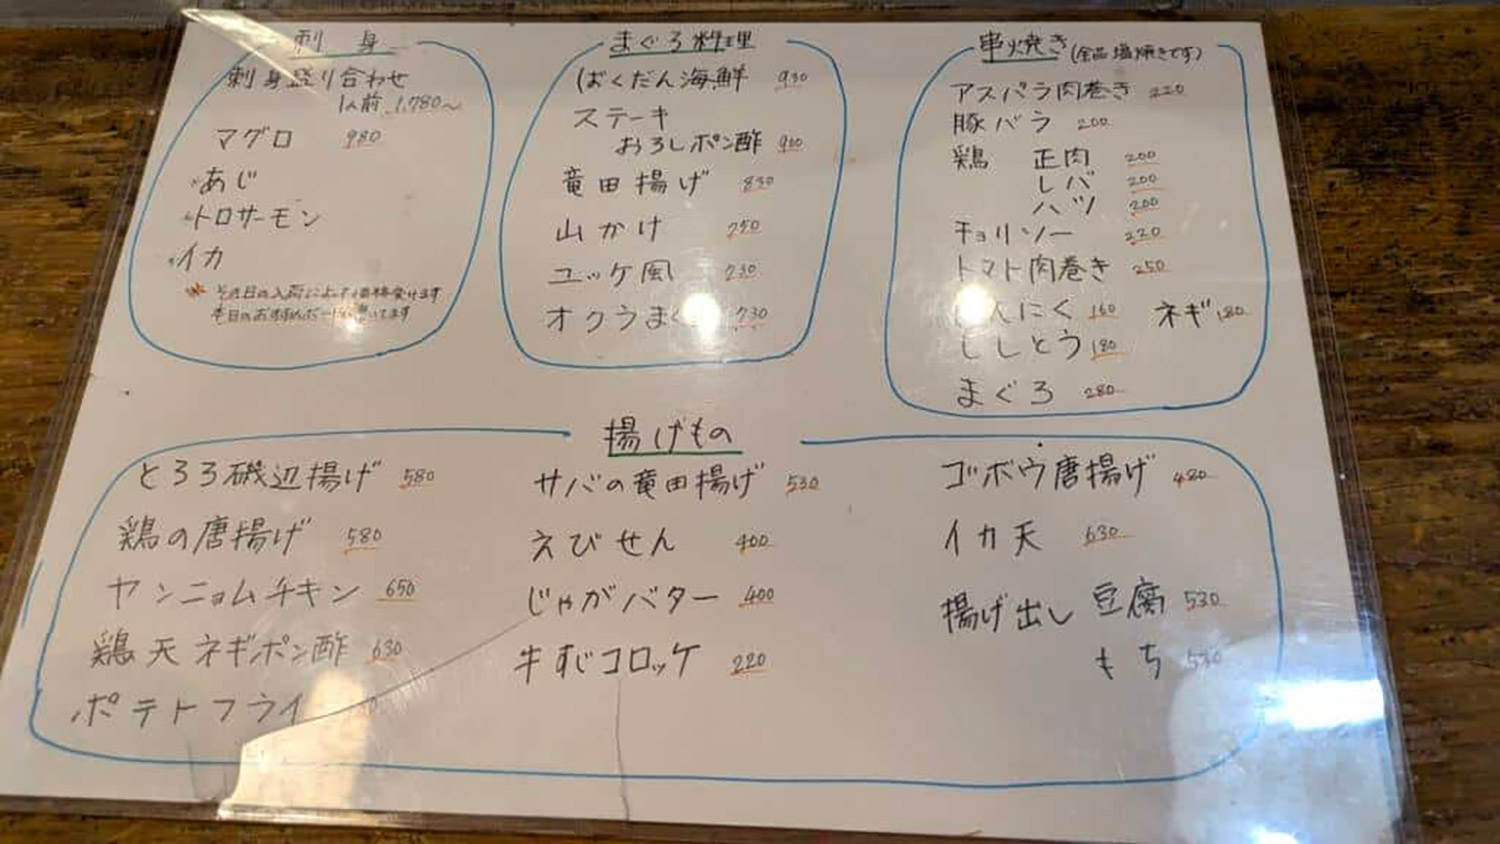 刺身
刺身盛り合わせ
1人前 1,780〜
マグロ 980
あじ
トロサーモン
イカ
※ その日の入荷によって価格変わります
本日のおすすめボードに書いてます
まぐろ料理
ばくだん海鮮 930
ステーキ
おろしポン酢 900
竜田揚げ 830
山かけ 750
ユッケ風 730
オクラまぐ 730
串焼き (全品塩焼きです)
アスパラ肉巻き 220
豚バラ 200
鶏 正肉 200
レバ 200
ハツ 200
チョリソー 220
トマト肉巻き 250
にんにく 160 ネギ 180
ししとう 180
まぐろ 280
揚げもの
とろろ磯辺揚げ 580
鶏の唐揚げ 580
ヤンニョムチキン 650
鶏天ネギポン酢 630
ポテトフライ
サバの竜田揚げ 530
えびせん 400
じゃがバター 400
牛すじコロッケ 220
ゴボウ唐揚げ 480
イカ天 630
揚げ出し豆腐 530
もち 530